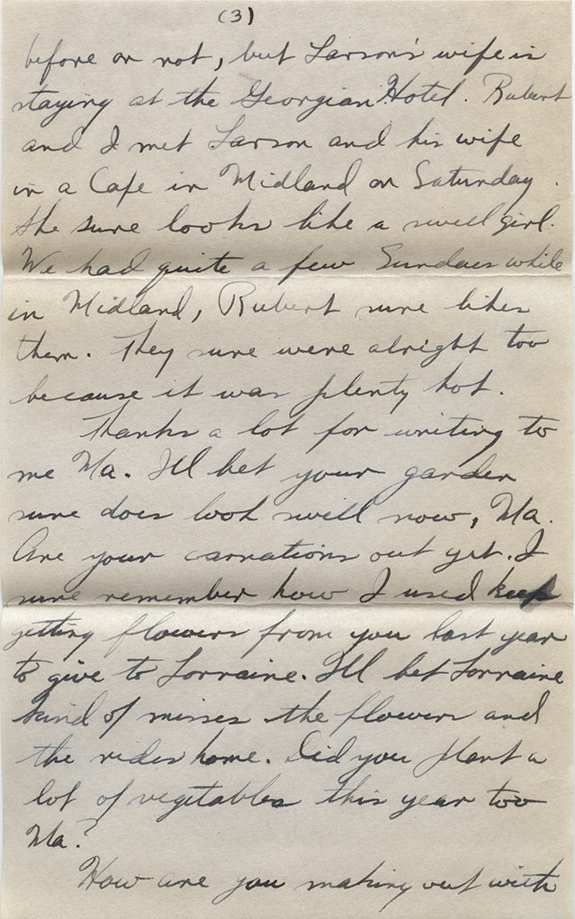 (3)
before or not, but Larson's wife is
staying at the Georgian Hotel. Rubert
and I met Larson and his wife
in a Cafe in Midland on Saturday.
She sure looks like a swell girl.
We had quite a few Sundaes while
in Midland, Rubert sure likes
them. They sure were alright too
because it was plenty hot.
Thanks a lot for writing to
me Ma. I'll bet your garden
sure does look swell now, Ma.
Are your carnations out yet. I
sure remember how I used keep
getting flowers from you last year
to give to Lorraine. I'll bet Lorraine
kind of misses the flowers and
the rides home. Did you plant a
lot of vegetables this year too
Ma?
How are you making out with